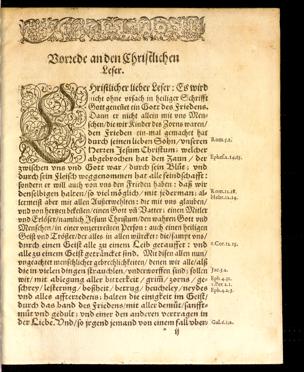 Vorrede an den Christlichen
Leser.
Christlicher lieber Leser: Es wird
nicht ohne vrsach in heiliger Schrifft
Gott genennet ein Gott des Friedens.
Dann er nicht allein mit vns Men-
schen, die wir Kinder des Zorns waren/
den Frieden ein-mal gemachet hat
durch seinen lieben Sohn/ vnseren
Herren Jesum Christum: welcher
abgebrochen hat den Zaun/ der
zwischen vns vnd Gott war/ durch sein Blůt; vnd
durch sein Fleisch weggenommen hat alle feindschafft:
sondern er will auch von vns den Frieden haben: daß wir
denselbigen halten/ so viel möglich/ mit jederman: al-
lermeist aber mit allen Außerwehlten: die mit vns glauben/
vnd von hertzen bekeñen/ einen Gott vñ Vatter: einen Mitler
vnd Erlöser/ namlich Jesum Christum/ den wahren Gott vnd
Menschen/ in einer Person: auch einen heiligen
Geist vnd Tröster der alles in allen würcket: die sampt vns/
durch einen Geist alle zu einem Leib getauffet: vnd
alle zu einem Geist getränckt sind. Mit disen allen nun/
vngeachtet menschlicher gebrechlichkeit/ denen wir alle/ alß
die in vielen dingen strauchlen/ vnderworffen sind: sollen
wir/ mit ablegung aller bitterkeit/ grim̃/ zorns/ ge-
schrey/ lesterung/ boßheit/ betrug/ heucheley/ neydes
vnd alles affterredens: halten die einigkeit im Geist/
durch das band des Friedens/ mit aller demůt/ sanfft-
můt vnd gedult; vnd einer den anderen vertragen in
der Liebe. Vnd/ so jrgend jemand von einem fall vber-
ij
Rom.5.1.
Ephes.2.14.15.
Rom.12.18.
Hebr.12.14.
1.Cor.12.13.
Jac.3.2.
Eph.4.31.
1.Pet.2.1.
Eph.4.2.3.
Gal.6.1.2.